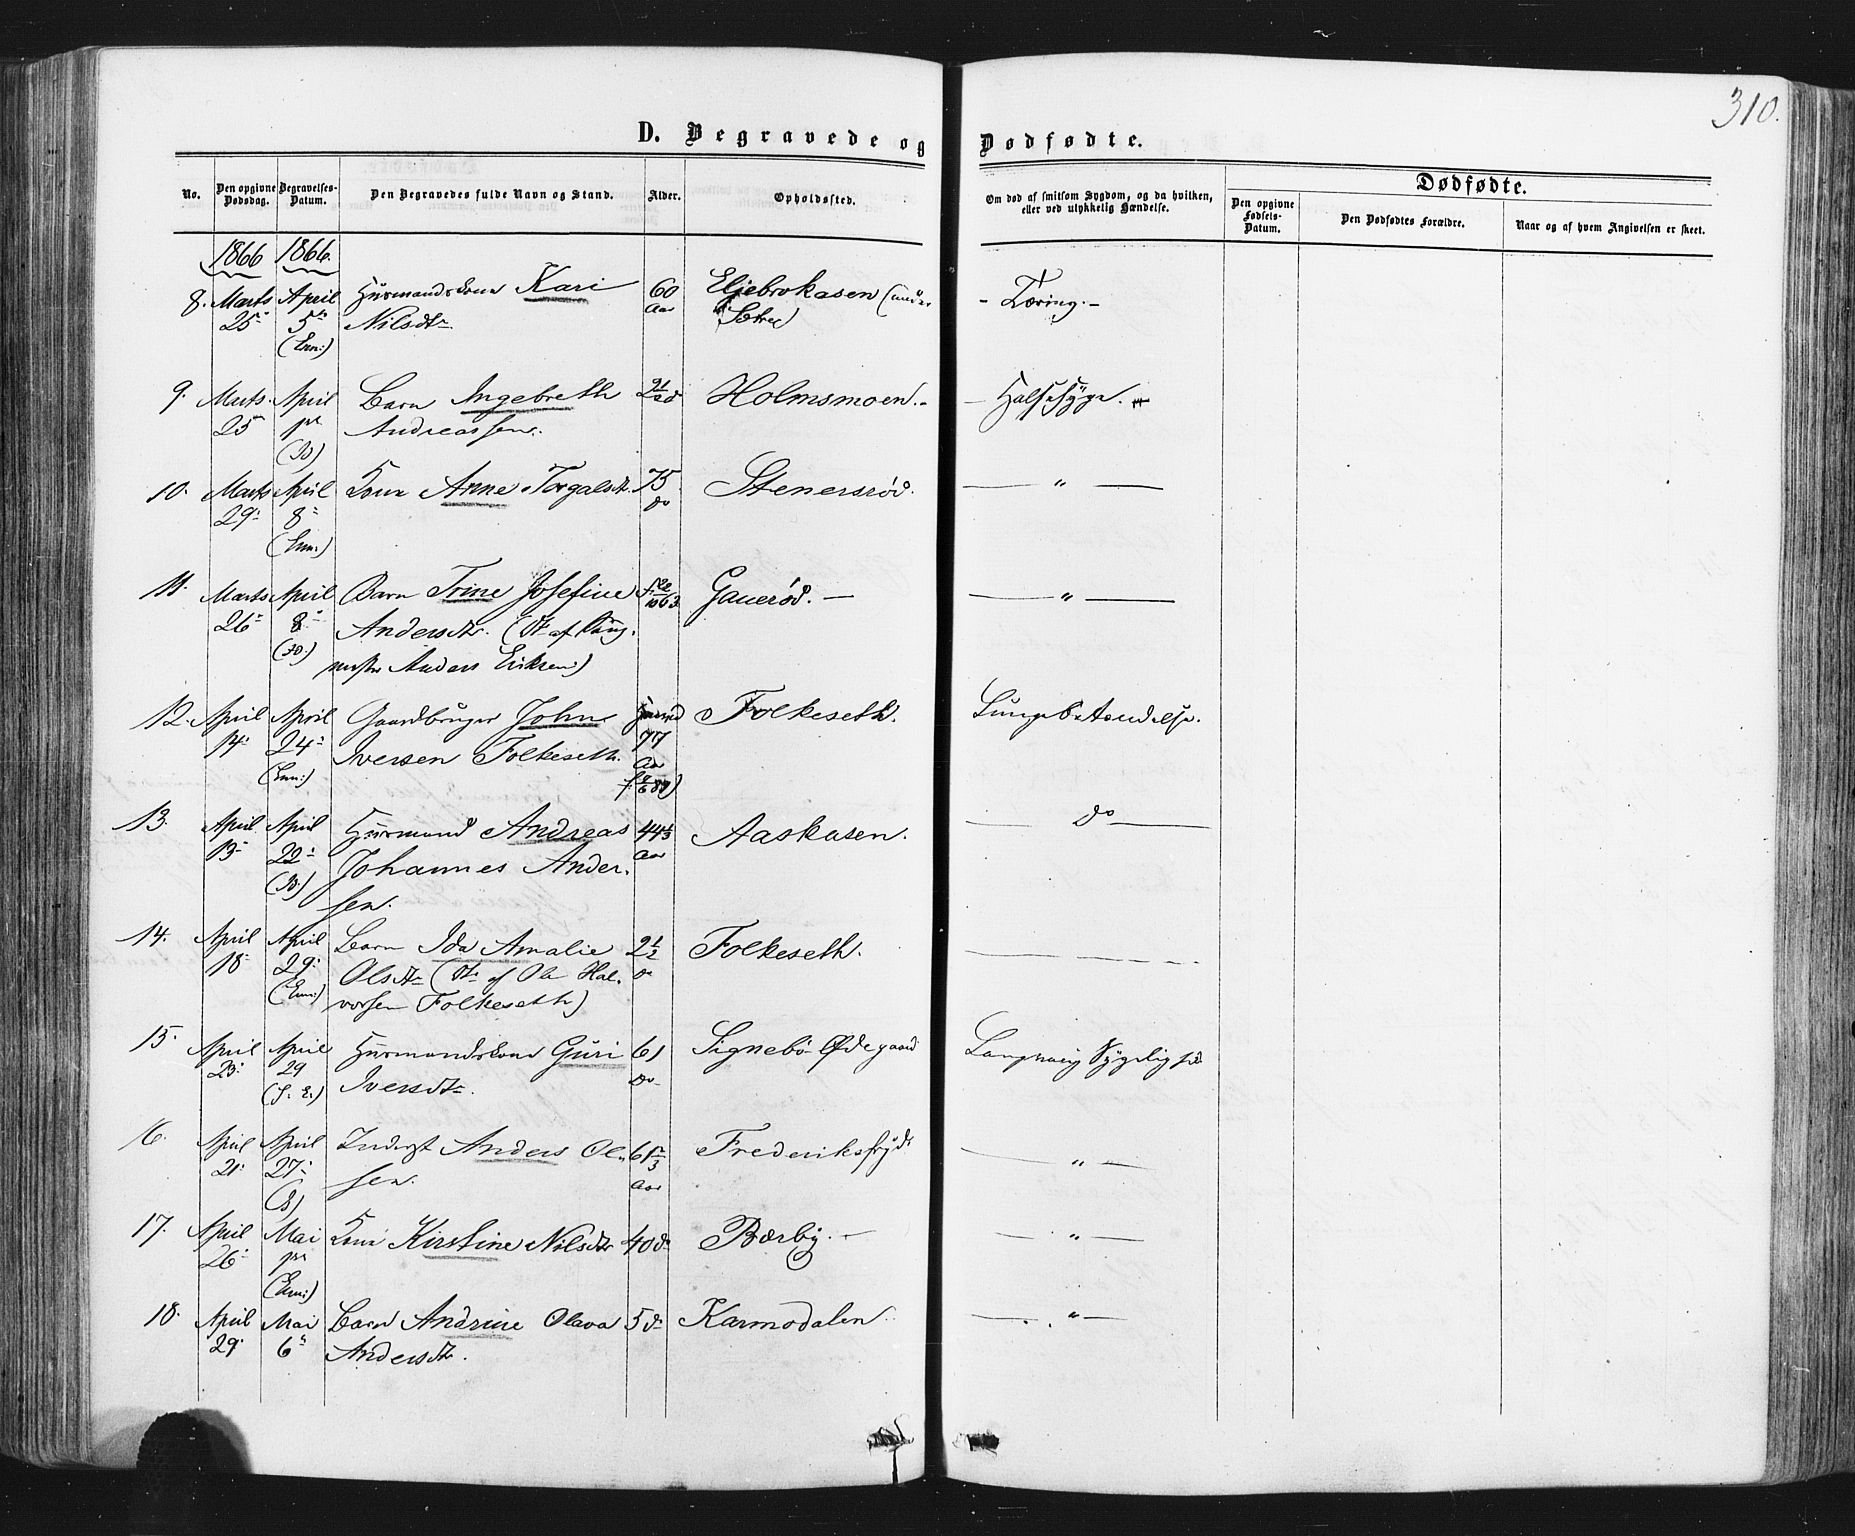 310.
D. Begravede og Dødfødte.
No.
Den opgivne Dødsdag.
Begravelses-Datum.
Den Begravedes fulde Navn og Stand.
Alder.
Opholdssted.
Om død af smitsom Sygdom, og da hvilken, eller ved ulykkelig Hændelse.
Dødfødte.
Den opgivne Fødsels-Datum.
Den Dødfødtes Forældre.
Naar og af hvem Angivelsen er skeet.
1866 1866.
8. Marts April Huusmandskone Kari 60 Eljebrokasen (under - Tæring. -
25 5 Nilsdtr Aar
(Enn:)
9. Marts April Barn Ingebreth Holmsmoen. - Halssyge.
25 Andreassen.
10. Marts April Kone Anne Torgalsdtr. 75 Stenersrød. — " —
29 8 do
(Enn:)
11. Marts April Barn Trine Josefine Gauerød. — — " —
26 8 Andersdtr. (Dtr af
Anders Eriksen)
12. April April Gaardbruger John Folkeseth. Lungebetændelse.
14 24 Iversen Folkeseth. 77
(Enn:) Aar
13. April April Huusmand Andreas 44 1/3 Aaskasen. — do —
13 22 Johannes Ander- Aar
sen.
14. April April Barn Ida Amalie 2 1/2 Folkeseth. — — —
18 29 Olsdtr (Dtr af Ole Hal- do
(Enn:) vorsen Folkeseth)
15. April April Huusmandskone Guri 61 Signebö Ødegaard Langvarig Sygelighed
23 29 Iversdtr. do
(S. E.)
16. April April Inderst Anders Ol- Frederiksfryd — " —
21 27 sen. Aar
17. April Mai Kone Kirstine Nilsdtr 40 do Bærby. — — " —
26
(Enn:)
18. April Mai Barn Andrine Olava 5 do Karmodalen. — " —
29 6 Andersdtr.